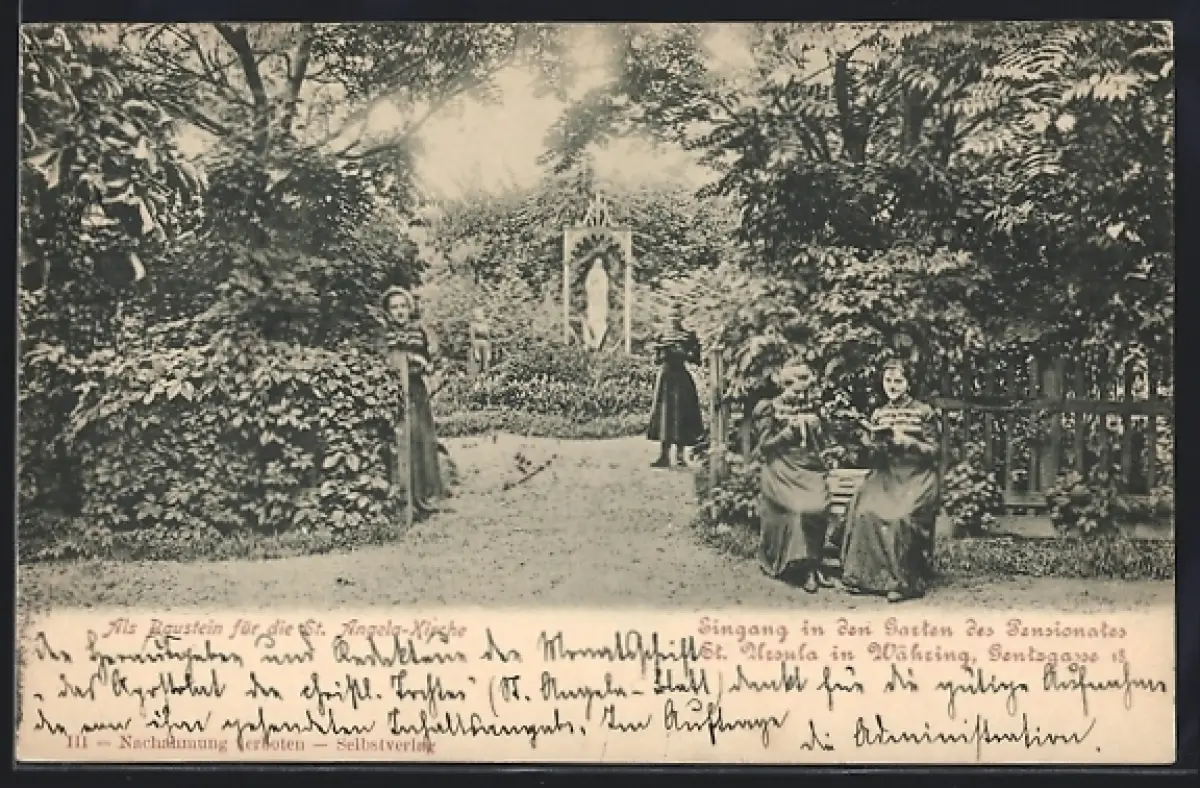 Als Baustein für die St. Angela-Kirche
Eingang in den Garten des Pensionates
St. Ursula in Währing, Gentzgasse
Der Herausgeber und Redakteur der Monatsschrift
"das Apostolat der christl. Tochter" (St. Angela-Blatt) dankt für die gütige Aufnahme
der von ihm gesendeten Inhaltsangabe. Im Auftrage
die Administration.
III — Nachahmung verboten — Selbstverlag